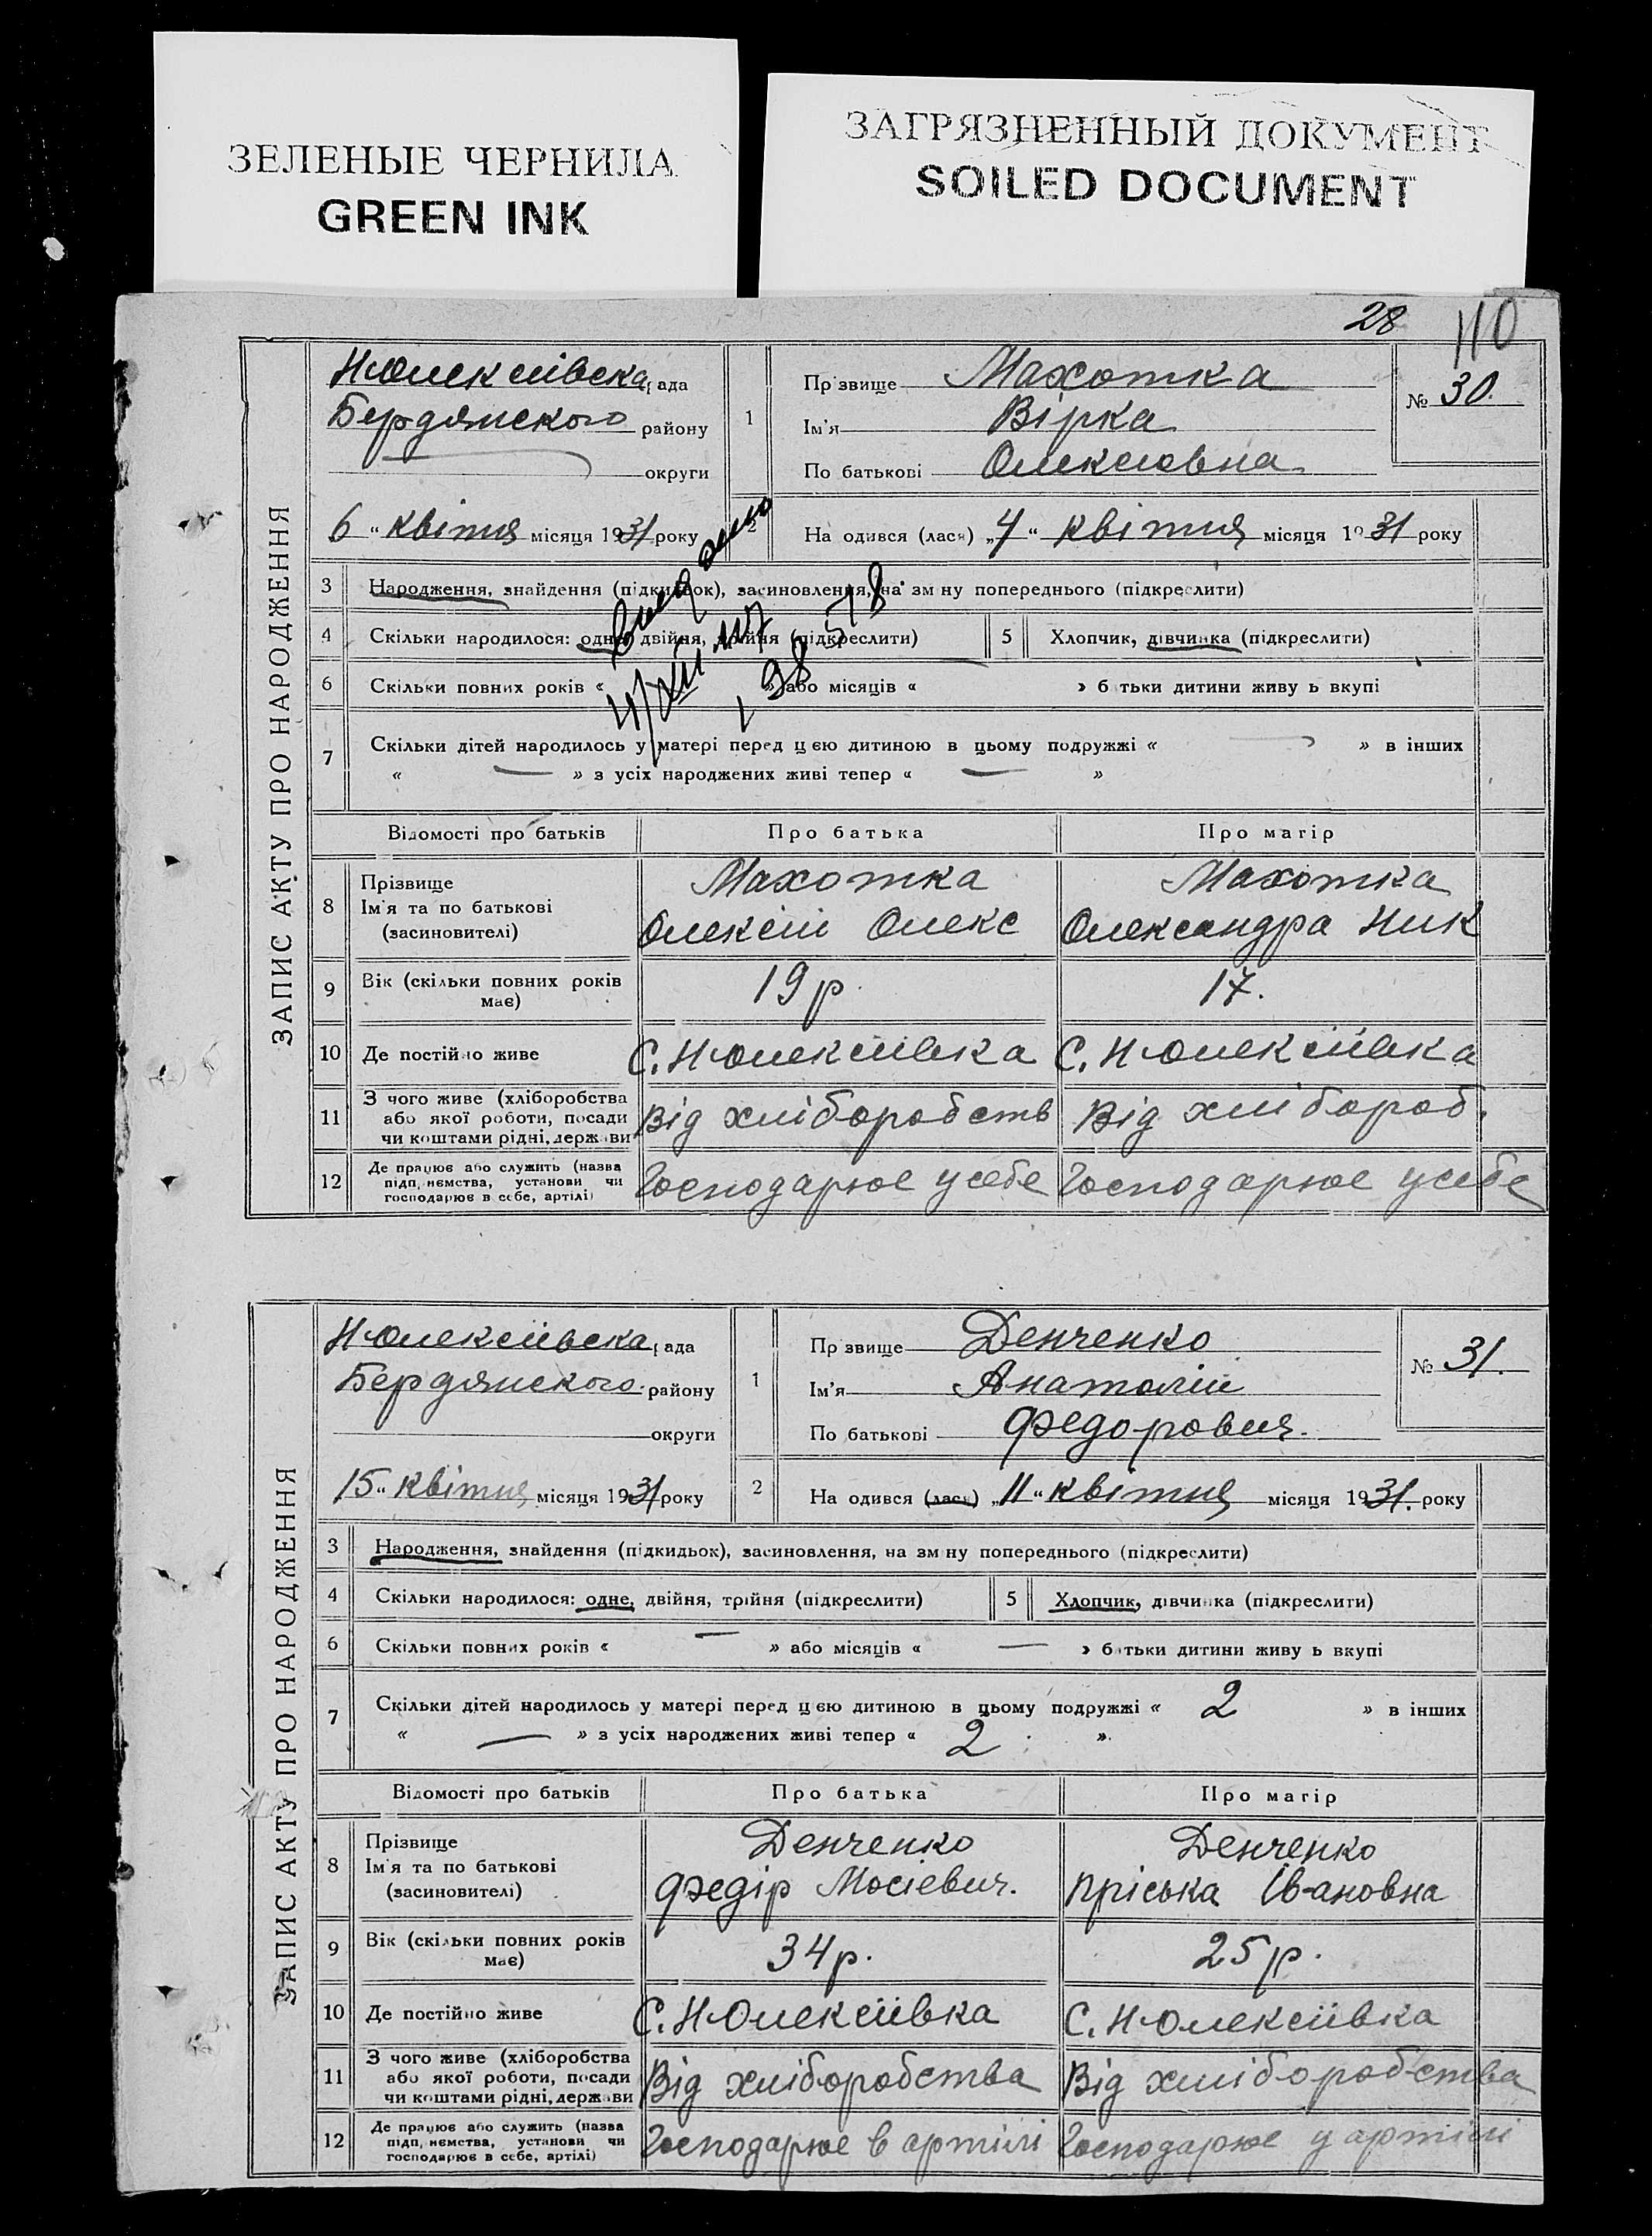 ЗЕЛЕНЫЕ ЧЕРНИЛА
GREEN INK
ЗАГРЯЗНЕННЫЙ ДОКУМЕНТ
SOILED DOCUMENT
28 110
ЗАПИС АКТУ ПРО НАРОДЖЕННЯ
Н-Олексіівська рада
Бердянского району
округи
1 Прізвище Махотка
Ім'я Вірка
По батькові Олексіовна
№ 30.
6 " квітня місяця 1931 року
2 На одився (лася) „4 " квітня місяця 1931 року
3 Народження, знайдення (підкидьок), засиновлення, на зм ну попереднього (підкреслити)
4 Скільки народилося: одне, двійня, трійня (підкреслити) 5 Хлопчик, дівчинка (підкреслити)
6 Скільки повних років « » або місяців « » б тьки дитини живу ь вкупі
7 Скільки дітей народилось у матері перед цією дитиною в цьому подружжі « — » в інших
« — » з усіх народжених живі тепер « — »
Відомості про батьків Про батька Про матір
8 Прізвище
Ім'я та по батькові
(засиновителі)
Махотка
Олексій Олекс
Махотка
Олександра Ник
9 Вік (скільки повних років має) 19 р. 17.
10 Де постійно живе С. Н-Олексіівка С. Н-Олексіівка
11 З чого живе (хліборобства
або якої роботи, посади
чи коштами рідні, держави
Від хліборобств Від хлібороб.
12 Де працює або служить (назва
підп, иємства, установи чи
господарює в себе, артілі)
Господарює у себе Господарює у себе
ЗАПИС АКТУ ПРО НАРОДЖЕННЯ
Н-Олексіівська рада
Бердянского району
округи
1 Пр звище Денченко
Ім'я Анатолій
По батькові Федорович.
№ 31.
15 " квітня місяця 1931 року
2 На одився (лася) „11 " квітня місяця 1931. року
3 Народження, знайдення (підкидьок), засиновлення, на зм ну попереднього (підкреслити)
4 Скільки народилося: одне, двійня, трійня (підкреслити) 5 Хлопчик, дівчинка (підкреслити)
6 Скільки повних років « — » або місяців « — » б тьки дитини живу ь вкупі
7 Скільки дітей народилось у матері перед цією дитиною в цьому подружжі « 2 » в інших
« — » з усіх народжених живі тепер « 2 »
Відомості про батьків Про батька Про матір
8 Прізвище
Ім'я та по батькові
(засиновителі)
Денченко
Федір Мосієвич.
Денченко
Пріська Івановна
9 Вік (скільки повних років має) 34 р. 25 р.
10 Де постійно живе С. Н-Олексіівка С. Н-Олексіівка
11 З чого живе (хліборобства
або якої роботи, посади
чи коштами рідні, держави
Від хліборобства Від хліборобства
12 Де працює або служить (назва
підп, иємства, установи чи
господарює в себе, артілі)
Господарює в артілі Господарює у артілі